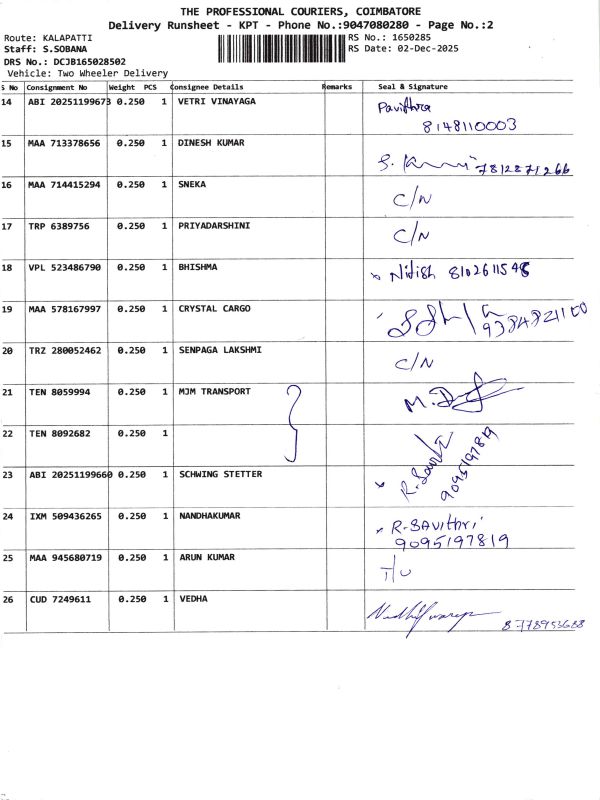 THE PROFESSIONAL COURIERS, COIMBATORE
Delivery Runsheet - KPT - Phone No.:9047080280 - Page No.:2
Route: KALAPATTI
RS No.: 1650285
Staff: S.SOBANA
RS Date: 02-Dec-2025
DRS No.: DCJB165028502
Vehicle: Two Wheeler Delivery
S No Consignment No Weight PCS Consignee Details Remarks Seal & Signature
14 ABI 20251199673 0.250 1 VETRI VINAYAGA Pavithra
8148110003
15 MAA 713378656 0.250 1 DINESH KUMAR
7812871266
16 MAA 714415294 0.250 1 SNEKA C/N
17 TRP 6389756 0.250 1 PRIYADARSHINI C/N
18 VPL 523486790 0.250 1 BHISHMA Nitish 8102611545
19 MAA 578167997 0.250 1 CRYSTAL CARGO
9384821100
20 TRZ 280052462 0.250 1 SENPAGA LAKSHMI C/N
21 TEN 8059994 0.250 1 MJM TRANSPORT
22 TEN 8092682 0.250 1
23 ABI 20251199660 0.250 1 SCHWING STETTER R.Savi
9095197819
24 IXM 509436265 0.250 1 NANDHAKUMAR R-SAVithri
9095197819
25 MAA 945680719 0.250 1 ARUN KUMAR
26 CUD 7249611 0.250 1 VEDHA
8778953688